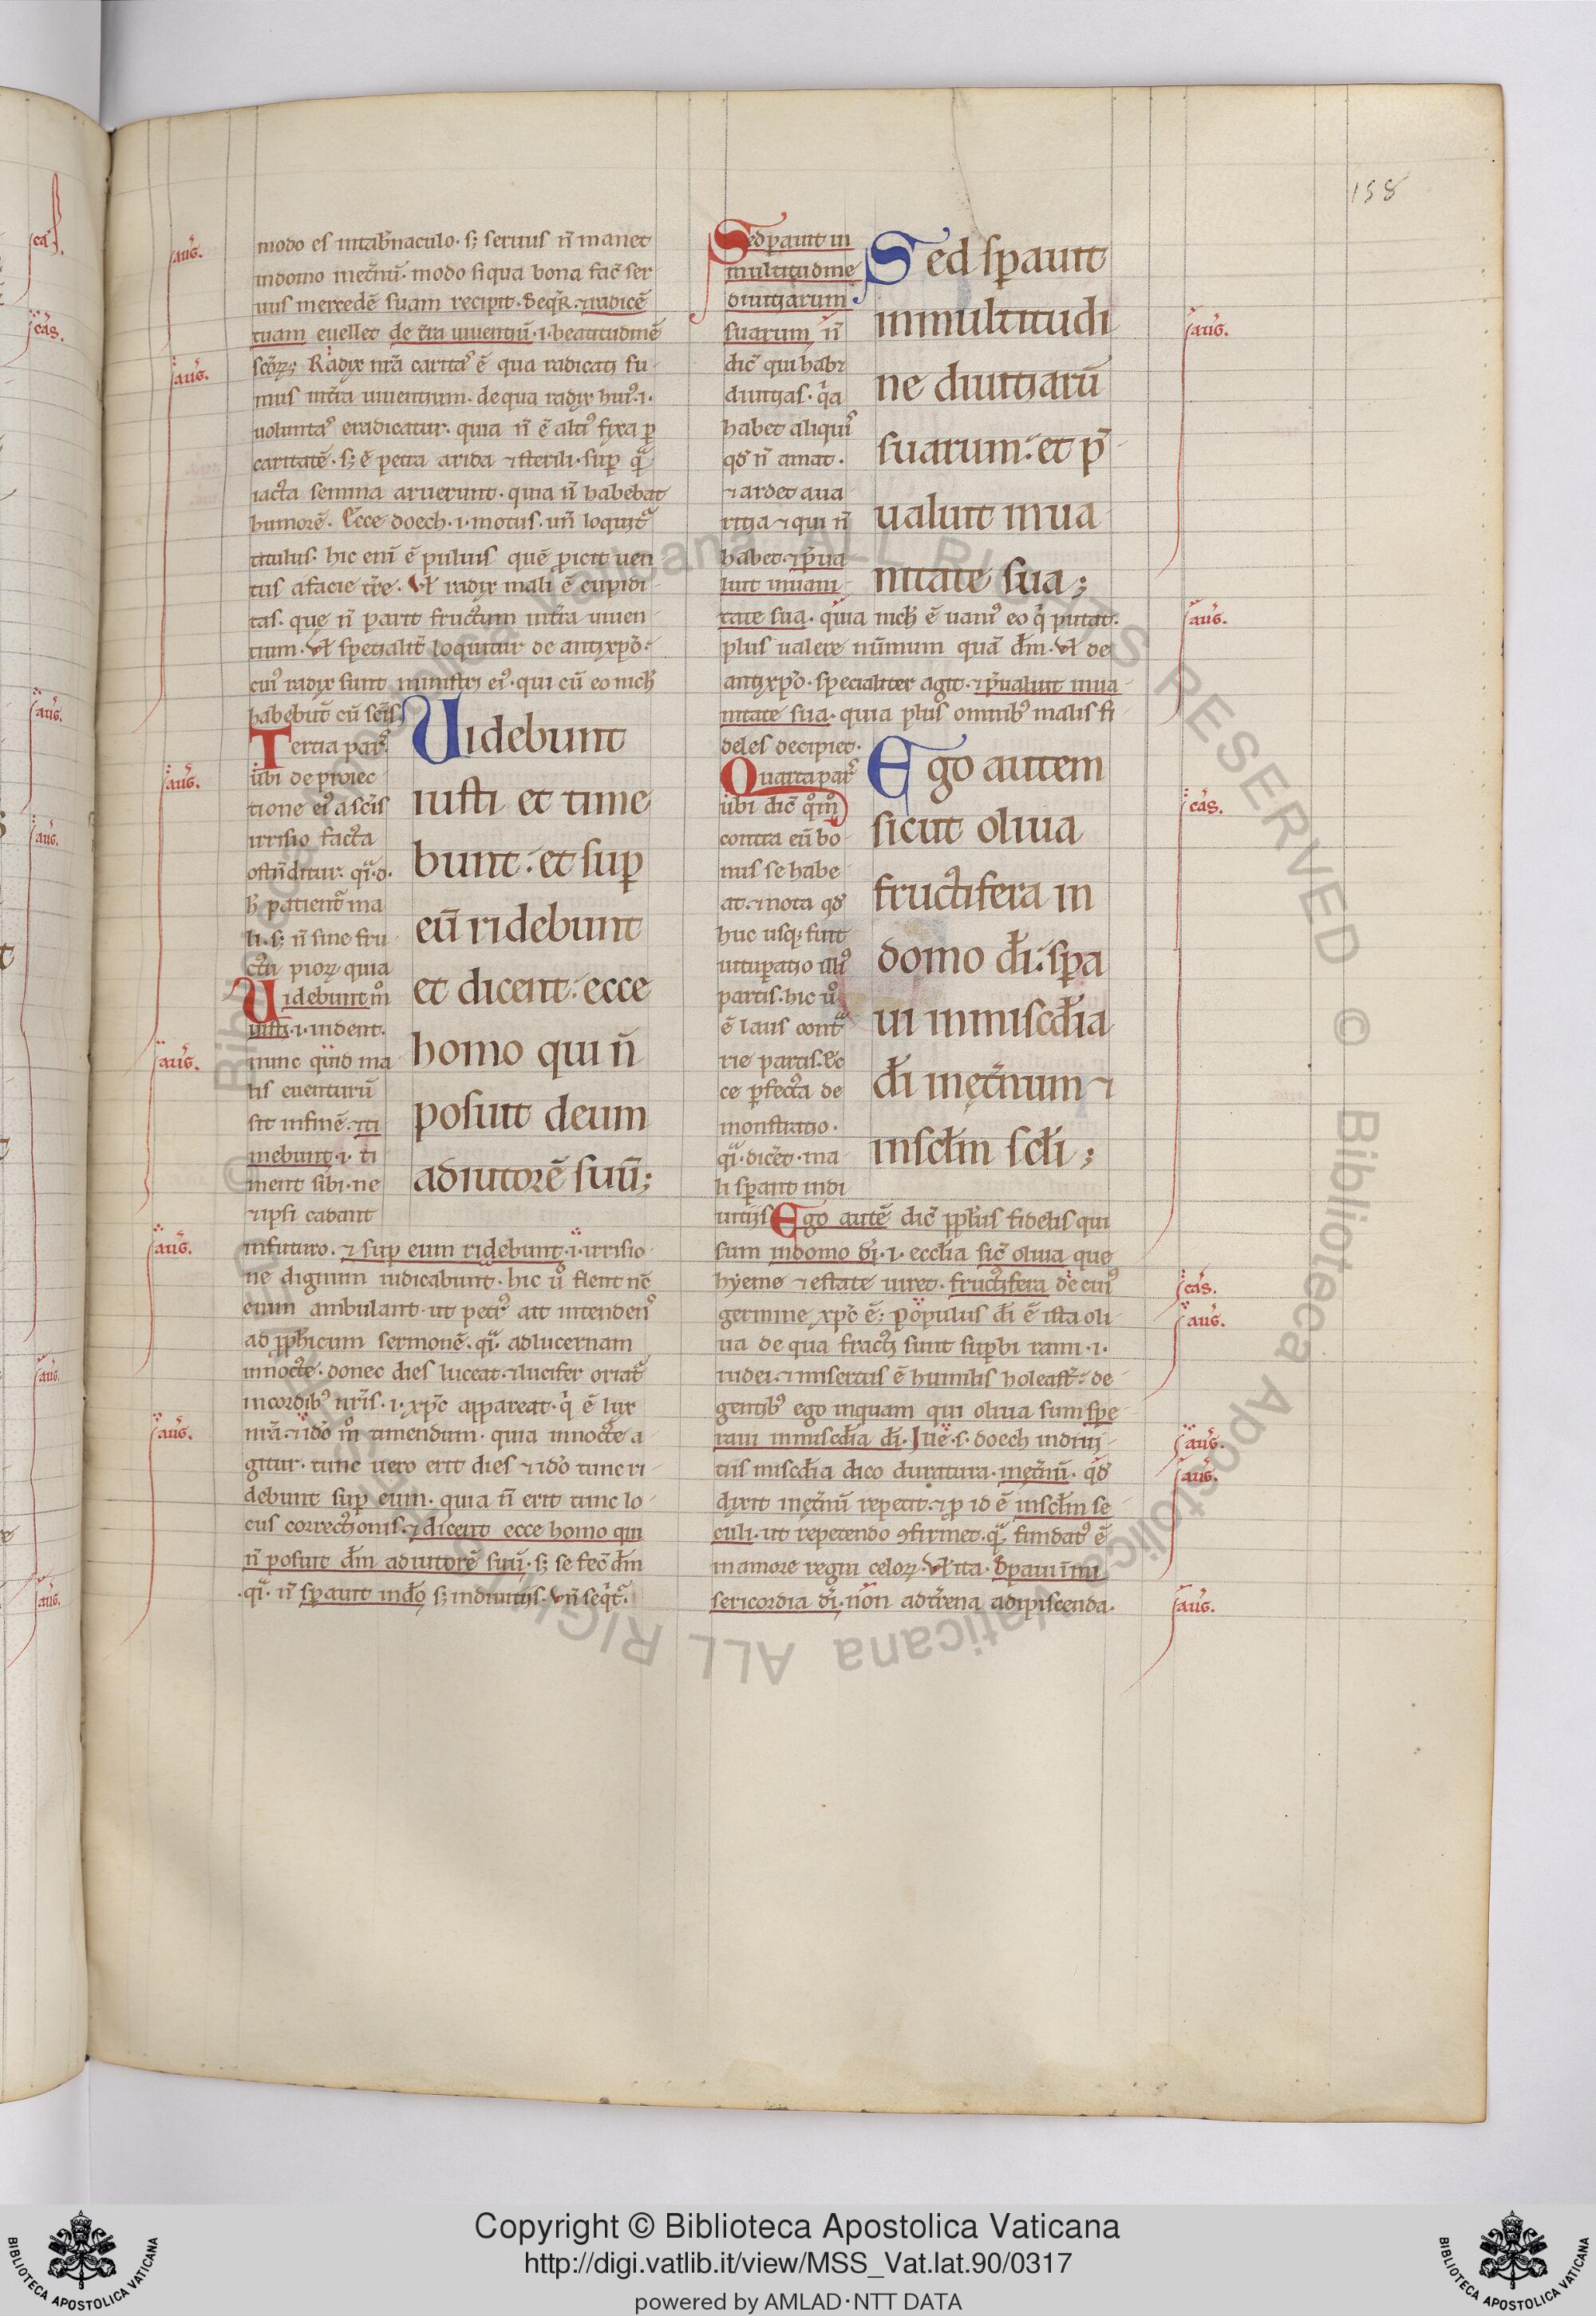 158
modo es intab̄naculo· s; seruus n̄ manet
indomo inet̄nū· modo siqua bona fac̄ ser
uus mercedē suam recipit· Seqr̄· ⁊radicē
tuam euellet de t̄ra uiuentiū·i·beatitudinē
scōꝝ; Radix nr̄a caritaꝰ ē qua radicati su
mus int̄ra uiuentium· dequa radix huiꝰ·i·
uoluntaꝰ eradicatur· quia n̄ ē altiꝰ fixa ꝑ
caritatē· s; ē petra arida ⁊sterili· suꝑ qᷓ
iacta semina aruerunt· quia n̄ habebat
humorē· Ecce doech·i·motus· un̄ loquitᷓ
titulus· hic eni ē puluis quē proicit uen
tus afacie t̄re· Vl̄ radix mali ē cupidi
tas· que n̄ parit fructum int̄ra uiuen
tium· vl̄ spetialit̄ loquitur de antixpō·
cuiꝰ radix sunt ministri eiꝰ· qui cū eo nich̄
habebūt cū scīs
Tertia parꝰ
ubi de proiec
tione eiꝰ ascīs
irrisio facta
ostn̄ditur· qᷓ·d·
h̄ patient̄ ma
li· s; n̄ sine fru
ctu pioꝝ quia
Uidebunt m̊
iusti·i·uident
nunc quid ma
lis euenturū
sit infinē· ⁊ti
mebunt·i· ti
ment sibi· ne
⁊ipsi cadant
Uidebunt
iusti et time
bunt· et suꝑ
eū ridebunt
et dicent· ecce
homo qui n̄
posuit deum
adiutorē suū;
infuturo· ⁊ suꝑ eum ridebunt·i·irrisio
ne dignum iudicabunt· hic ů flent nc̄
enim ambulant· ut petrꝰ ait intendenꝰ
ad ꝓph̄icum sermonē· qᷓ· adlucernam
innocte· donec dies luceat· ⁊lucifer oriatᷓ
incordibꝰ ur̄is·i· xp̄c appareat· qͥ ē lux
nr̄a· ⁊idō m̊ timendum· quia innocte a
gitur· tunc uero erit dies ⁊idō tunc ri
debunt suꝑ eum· quia n̄ erit tunc lo
cus correctionis· ⁊dicent ecce homo qui
n̄ posuit dm̄ adiutorē suū· s; se fec̄ dm̄
·qᷓ· n̄ sperauit indo s; indiuitijs· vn̄ seqͥt·
Sedꝑauit in
multitudine
diuitiarum
suarum n̄
dic̄ qui habꝫ
diuitias· qͣa
habet aliquiꝰ
qd̄ n̄ amat·
⁊ardet aua
ritia ⁊qui n̄
habet ⁊p̄ua
luit inuani
Sed sꝑauit
inmultitudi
ne diuitiarū
suarum· et p̄
ualuit inua
nitate sua;
tate sua· quia nich̄ ē uaniꝰ eo qͥ putat
plus ualere nūmum quā dm̄· vl̄ de
antixpō· specialiter agit· ⁊p̄ualuit inua
nitate sua· quia plus omnibꝰ malis fi
deles decipiet·
Quarta parꝰ
ubi dic̄ qm̊
contra eū bo
nus se habe
at· ⁊nota qd̄
huc usqꝫ fuit
uituꝑatio illiꝰ
partis· hic ů
ē laus contᷓ
rie partis· Ec
ce ꝑfecta de
monstratio·
qᷓ· dicēt· ma
li sꝑant indi
Ego autem
sicut oliua
fructifera in
domo dī· sꝑa
ui inmiscd̄ia
dī inet̄num ⁊
insclm̄ scl̄i;
uitijs Ego autē dic̄ ppl̄us fidelis qui
sum indomo dī·i· eccl̄ia sic̄ oliua que
hyeme ⁊estate uiret· fructifera de cuiꝰ
germine xp̄c ē; Populus dī ē ista oli
ua de qua fracti sunt suꝑbi rami·i·
iudei· ⁊misertus ē humilis holeastr̄· de
gentibꝰ ego inquam qui oliua sum spe
raui inmiscd̄ia dī· Iue·s· doech indiuij
tiis miscd̄ia dico duratura· inet̄nū· qd̄
dixit inet̄nū repetit· ⁊ꝑ id ē insclm̄ se
culi· ut repetendo ꝯfirmet· qᷓ· fundatꝰ ē
inamore regni celoꝝ· Vl̄ ita· Sꝑaui inmi
sericordia dī· non adt̄rena adipiscenda·
aug̃.
aug̃.
aug̃.
aug̃.
aug̃.
aug̃.
aug̃.
aug̃.
cas̃.
cas̃.
aug̃.
aug̃.
aug̃.
aug̃.
Copyright © Biblioteca Apostolica Vaticana
http://digi.vatlib.it/view/MSS_Vat.lat.90/0317
powered by AMLAD·NTT DATA
BIBLIOTECA APOSTOLICA VATICANA
BIBLIOTECA APOSTOLICA VATICANA
© Biblioteca Apostolica Vaticana ALL RIGHTS RESERVED © Biblioteca Apostolica Vaticana ALL RIGHTS RESERVED